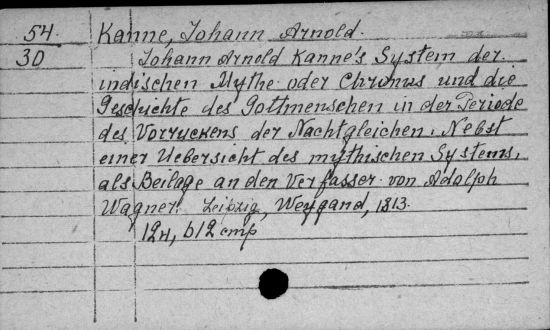 54.
30
Kanne, Johann Arnold.
Johann Arnold Kanne's System der
indischen Mythe oder Chronus und die
Geschichte des Gottmenschen in der Periode
des Vorryckens der Nachtgleichen. Nebst
einer Uebersicht des mythischen Systems,
als Beilage an den Verfasser von Adolph
Wagner. Leipzig, Weygand, 1813.
612 cmp